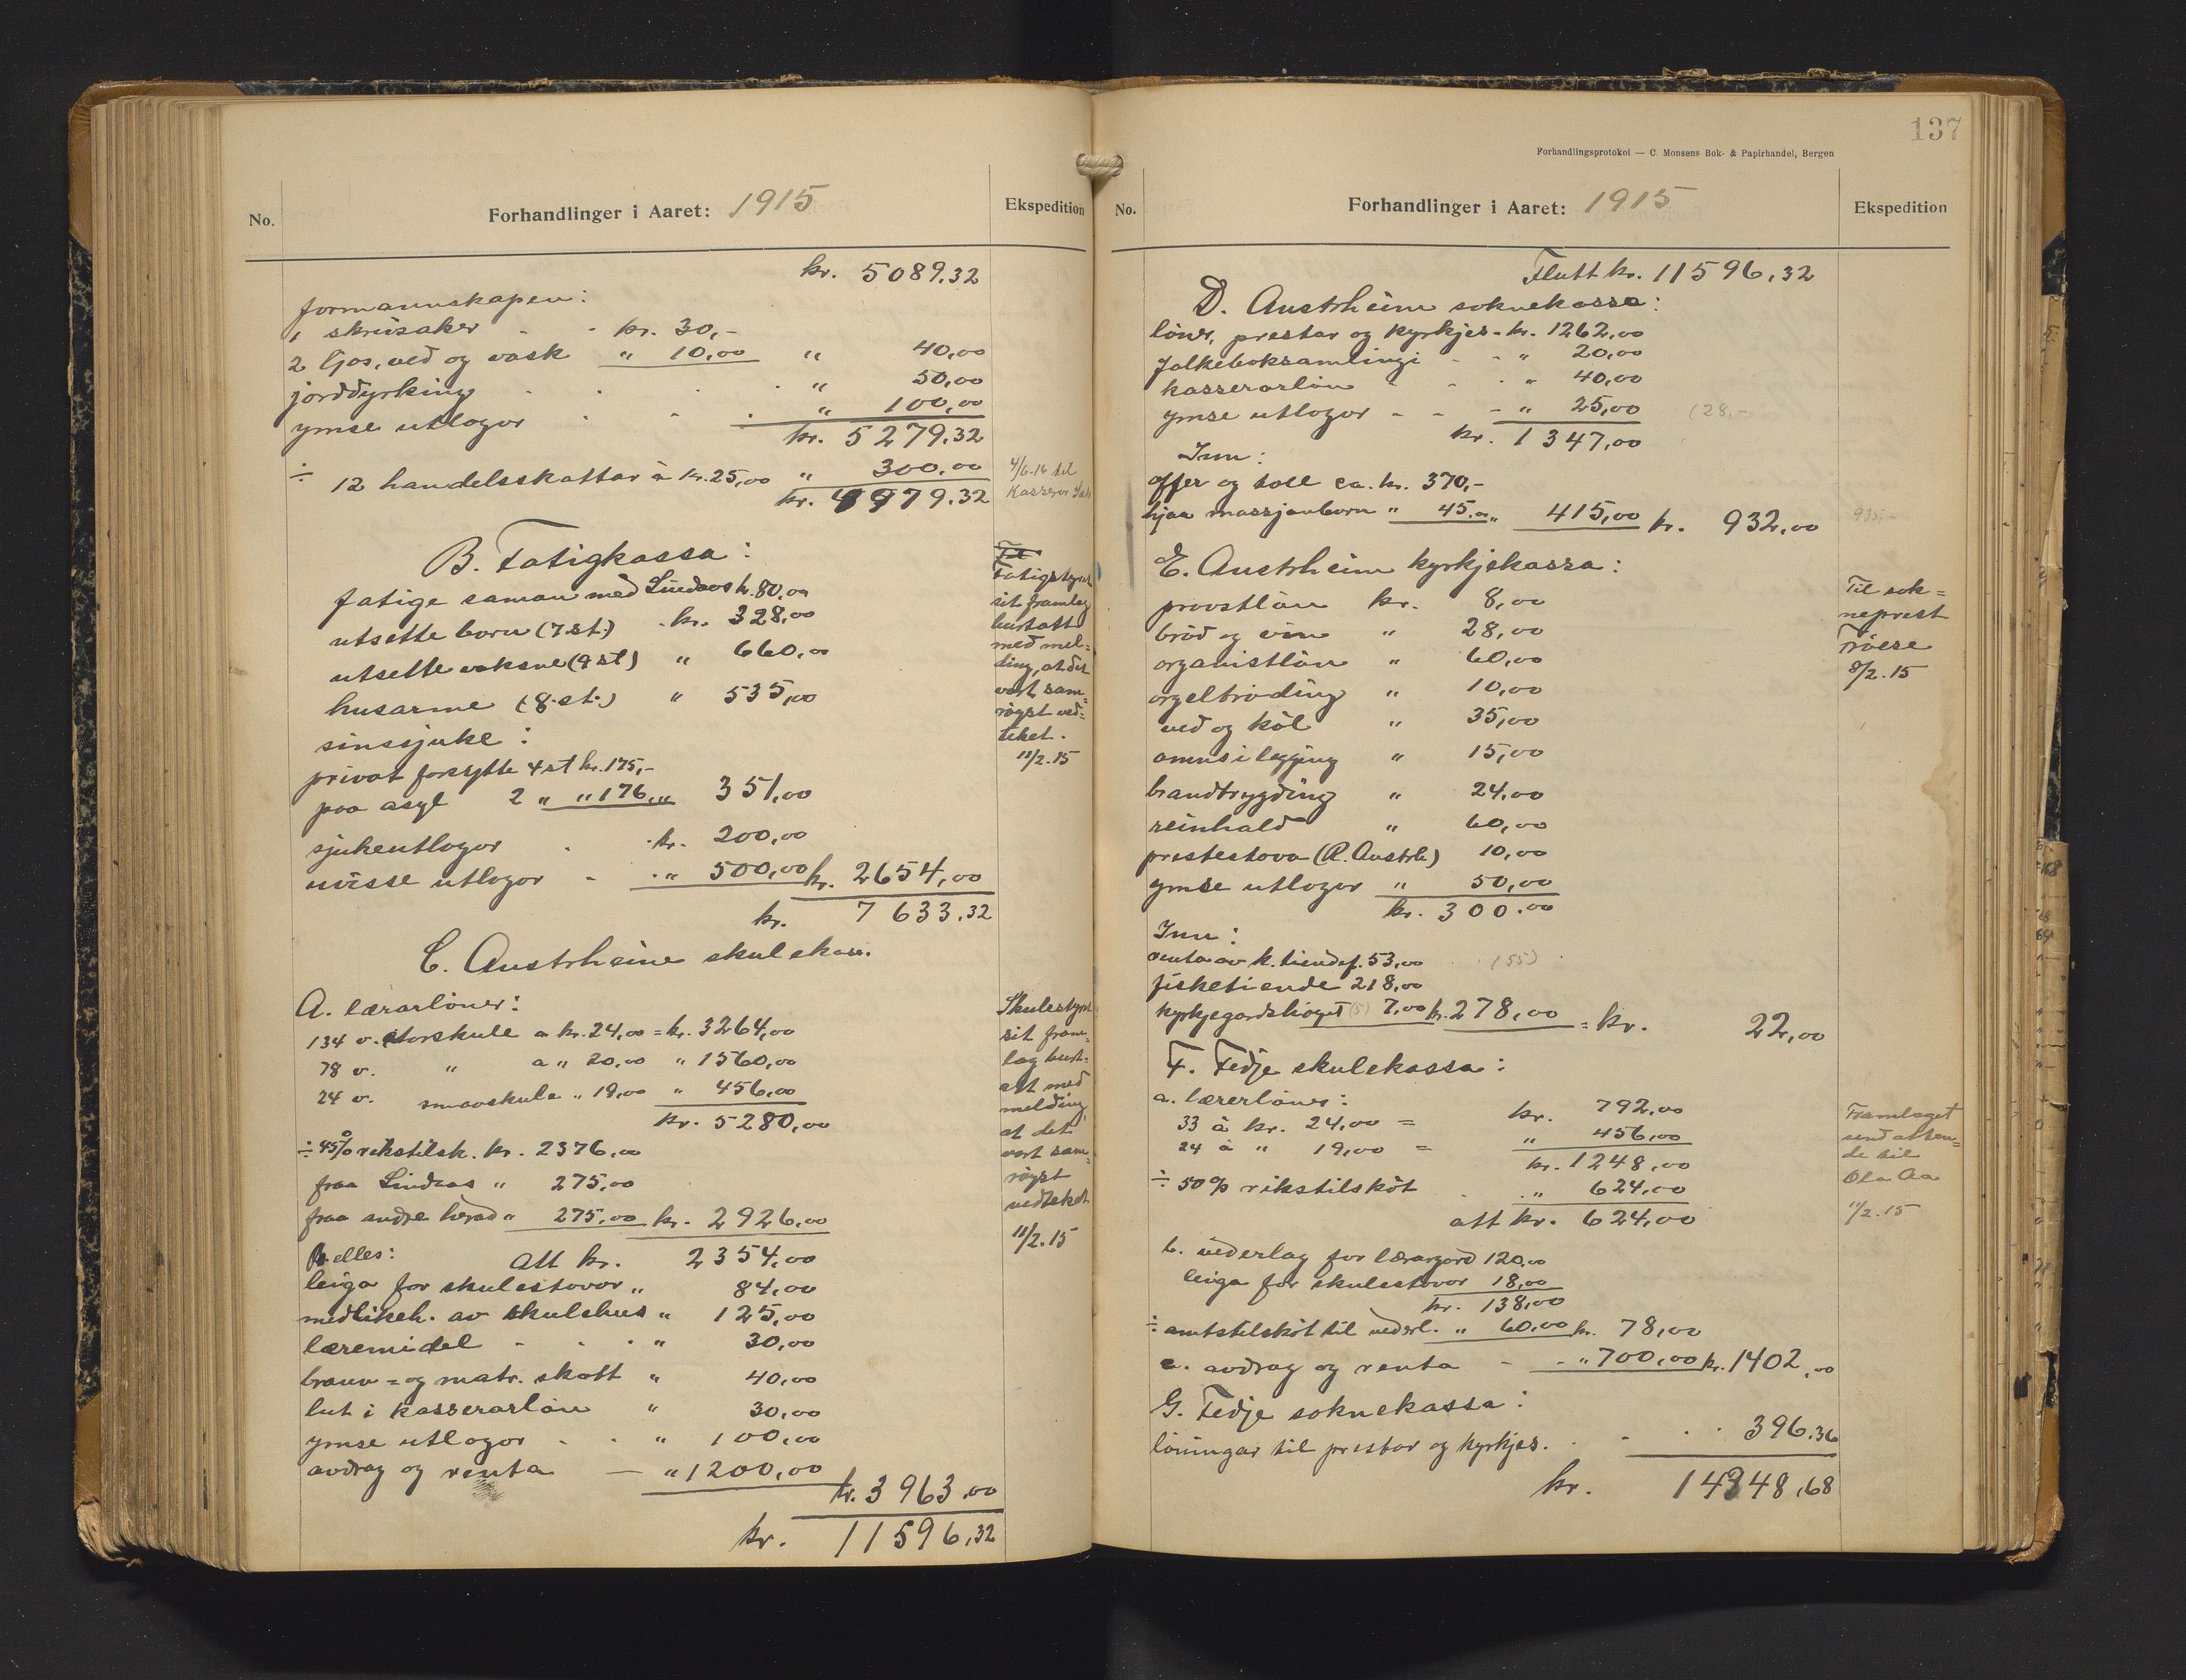 No.
Forhandlinger i Aaret: 1915
Ekspedition
kr. 5089.32
formannskapen:
1 skrivsaker - - kr. 30,-
2 Ljos, ved og vask " 10,00 " 40,00
jorddyrking - - - " 50,00
ymse utlogor - - - " 100,00
kr. 5279.32
÷ 12 handelsskattar à kr. 25,00 " 300,00
kr. 4979.32
4/6-16 til
Kasserer
B. Fatigkassa:
fatige saman med Lindaas kr. 80,00
utsette born (7 st.) - kr. 328,00
utsette voksne (9 st) " 660,00
husarme (8 st.) " 535,00
sinssjuke:
privat forsytte 4 st kr. 175,-
paa asyl 2 " " 176,00 351,00
sjukeutlogor - kr. 200,00
uvisse utlogor - - " 500,00 kr. 2654,00
kr. 7633.32
Fatigstyret
sit framlag
burtatt
med mel=
ding, at det
vart sam=
røgst ved=
teket.
11/2.15
C. Austrheim skulekasse.
A. lærarløner:
134 v. storskule a kr. 24,00 = kr. 3264,00
78 v. " a " 20,00 " 1560,00
24 v. smaaskule " 19,00 " 456,00
kr. 5280,00
÷ 45% rikstilsk. kr. 2376,00
fraa Lindaas " 275,00
fraa andre herad " 275,00 kr. 2926,00
att kr. 2354,00
B elles:
leiga for skulestovor " 84,00
medlikeh. av skulehus " 125,00
læremidel - - - " 30,00
brann= og matr. skatt " 40,00
lut i kasserarløn " 30,00
ymse utlogor - - " 100,00
avdrag og renta — " 1200,00
kr. 3963,00
kr. 11596,32
Skulestyret
sit fram=
lag burt=
att med
melding,
at det
vart sam=
røgst
vedteket
11/2.15
137
Forhandlingsprotokol — C. Monsens Bok- & Papirhandel, Bergen
No.
Forhandlinger i Aaret: 1915
Ekspedition
Flutt kr. 11596,32
D. Austrheim soknekassa:
løner, prestar og kyrkjes - kr. 1262,00
folkeboksamlingi - - " 20,00
kasserarløn - - - " 40,00
ymse utlogor - - - " 25,00 (28.-
kr. 1347,00
Inn:
offer og toll ca. kr. 370,-
hjaa massjonborn " 45.00 " 415,00 kr. 932,00
935,-
E. Austrheim kyrkjekassa:
provstløn kr. 8,00
brød og vin " 28,00
organistløn " 60,00
orgeltrøding " 10,00
ved og kòl " 35,00
omnsilegging " 15,00
brandtrygding " 24,00
reinhald " 60,00
prestestova (R. Austrh.) 10,00
ymse utlogor " 50,00
kr. 300,00
Til sok=
neprest
Trøese
8/2.15
Inn:
renta av k. tiendef. 53,00 (55)
fisketiende 218,00
kyrkjegardshøyet (5) 7,00 kr. 278,00 = kr. 22,00
F. Fedje skulekassa:
a. lærerløner:
33 à kr. 24,00 = kr. 792,00
24 à " 19,00 = " 456,00
kr. 1248,00
÷ 50% rikstilskòt - - " 624,00
att kr. 624,00
Framlaget
send atten=
de til
Ola Aa
11/2.15
b. vederlag for lærargard 120,00
leiga for skulestovor 18,00
kr. 138,00
÷ amtstilskòt til vederl. " 60,00 kr. 78,00
c. avdrag og renta - - " 700,00 kr. 1402,00
G. Fedje soknekassa:
løningar til prestar og kyrkjes. - - - 396.36
kr. 14348,68